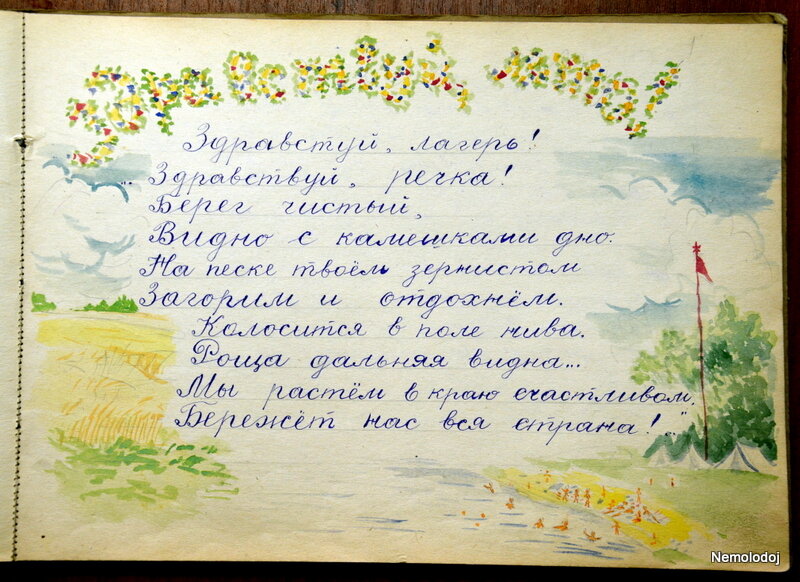 Здравствуй, лето!
Здравстуй, лагерь!
... Здравствуй, речка!
Берег чистый,
Видно с камешками дно.
На песке твоём зернистом
Загорим и отдохнём.
Колосится в поле нива.
Роща дальняя видна...
Мы растём в краю счастливом.
Бережёт нас вся страна!..."
Nemolodoj